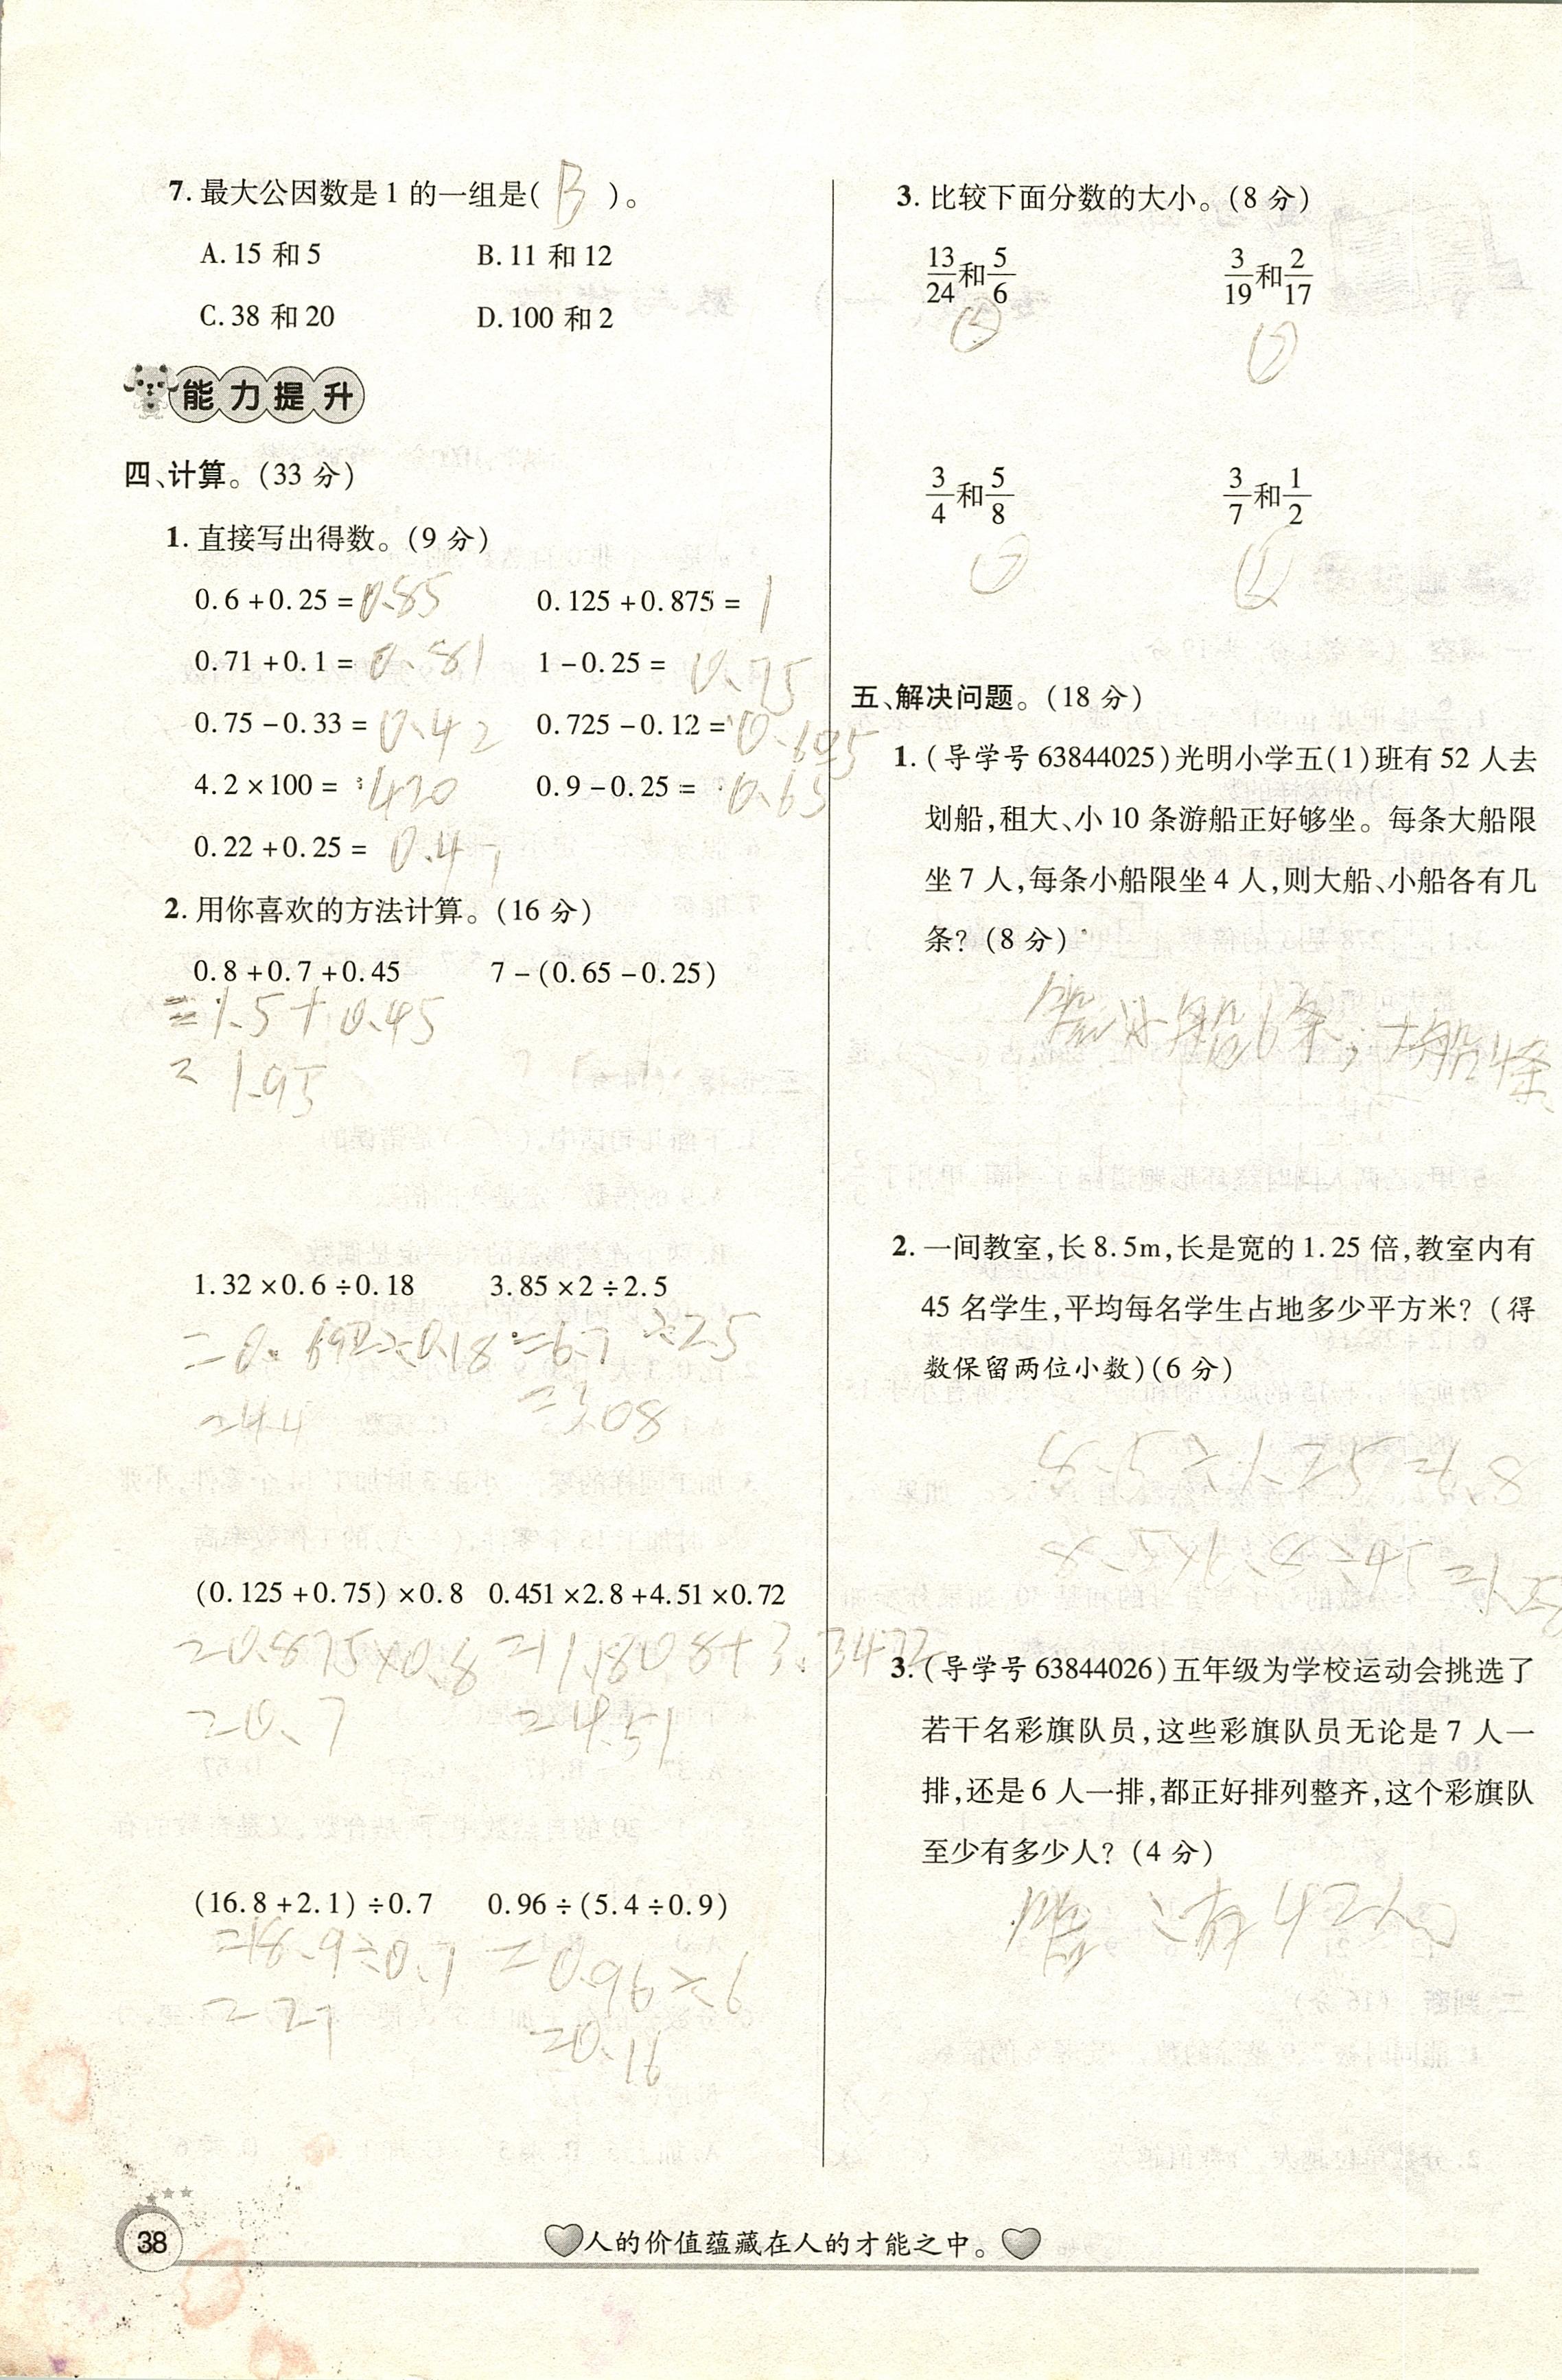 7. 最大公因数是1的一组是( B )。
A. 15 和 5 B. 11 和 12
C. 38 和 20 D. 100 和 2
能力提升
四、计算。(33 分)
1. 直接写出得数。(9 分)
0.6+0.25=0.85 0.125+0.875=1
0.71+0.1=0.81 1-0.25=0.75
0.75-0.33=0.42 0.725-0.12=0.605
4.2×100=420 0.9-0.25=0.65
0.22+0.25=0.47
2. 用你喜欢的方法计算。(16 分)
0.8+0.7+0.45 7-(0.65-0.25)
=1.5+0.45
=1.95
1.32×0.6÷0.18 3.85×2÷2.5
=0.792÷0.18 =7.7÷2.5
=4.4 =3.08
(0.125+0.75)×0.8 0.451×2.8+4.51×0.72
=0.875×0.8 =1.1808+3.3432
=0.7 =4.51
(16.8+2.1)÷0.7 0.96÷(5.4÷0.9)
=18.9÷0.7 =0.96÷6
=27 =0.16
3. 比较下面分数的大小。(8 分)
13/24和5/6 3/19和2/17
3/4和5/8 3/7和1/2
五、解决问题。(18 分)
1. (导学号 63844025)光明小学五(1)班有 52 人去
划船,租大、小 10 条游船正好够坐。每条大船限
坐 7 人,每条小船限坐 4 人,则大船、小船各有几
条? (8 分)
答:小船6条,大船4条
2. 一间教室,长 8.5m,长是宽的 1.25 倍,教室内有
45 名学生,平均每名学生占地多少平方米? (得
数保留两位小数)(6 分)
3. (导学号 63844026)五年级为学校运动会挑选了
若干名彩旗队员,这些彩旗队员无论是 7 人一
排,还是 6 人一排,都正好排列整齐,这个彩旗队
至少有多少人? (4 分)
答:有42人。
38
人的价值蕴藏在人的才能之中。